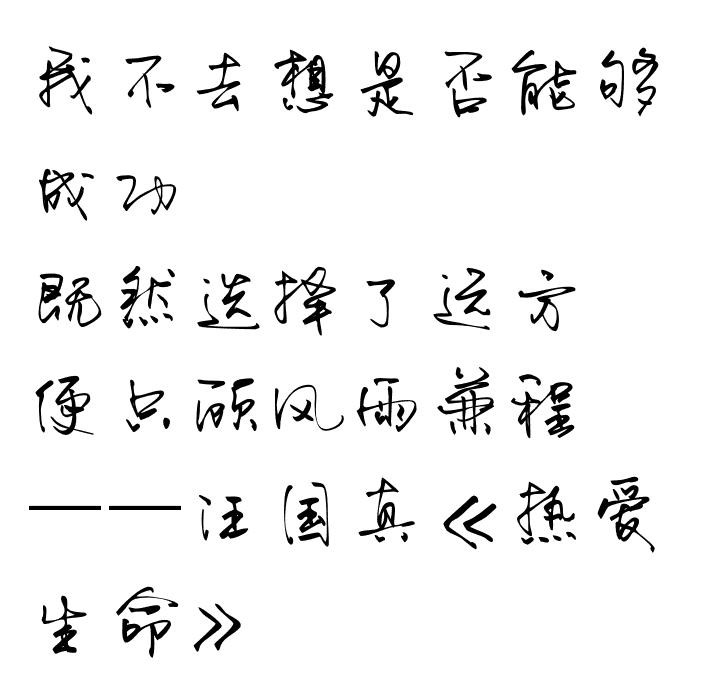 我不去想是否能够
成功
既然选择了远方
便只顾风雨兼程
——汪国真《热爱
生命》